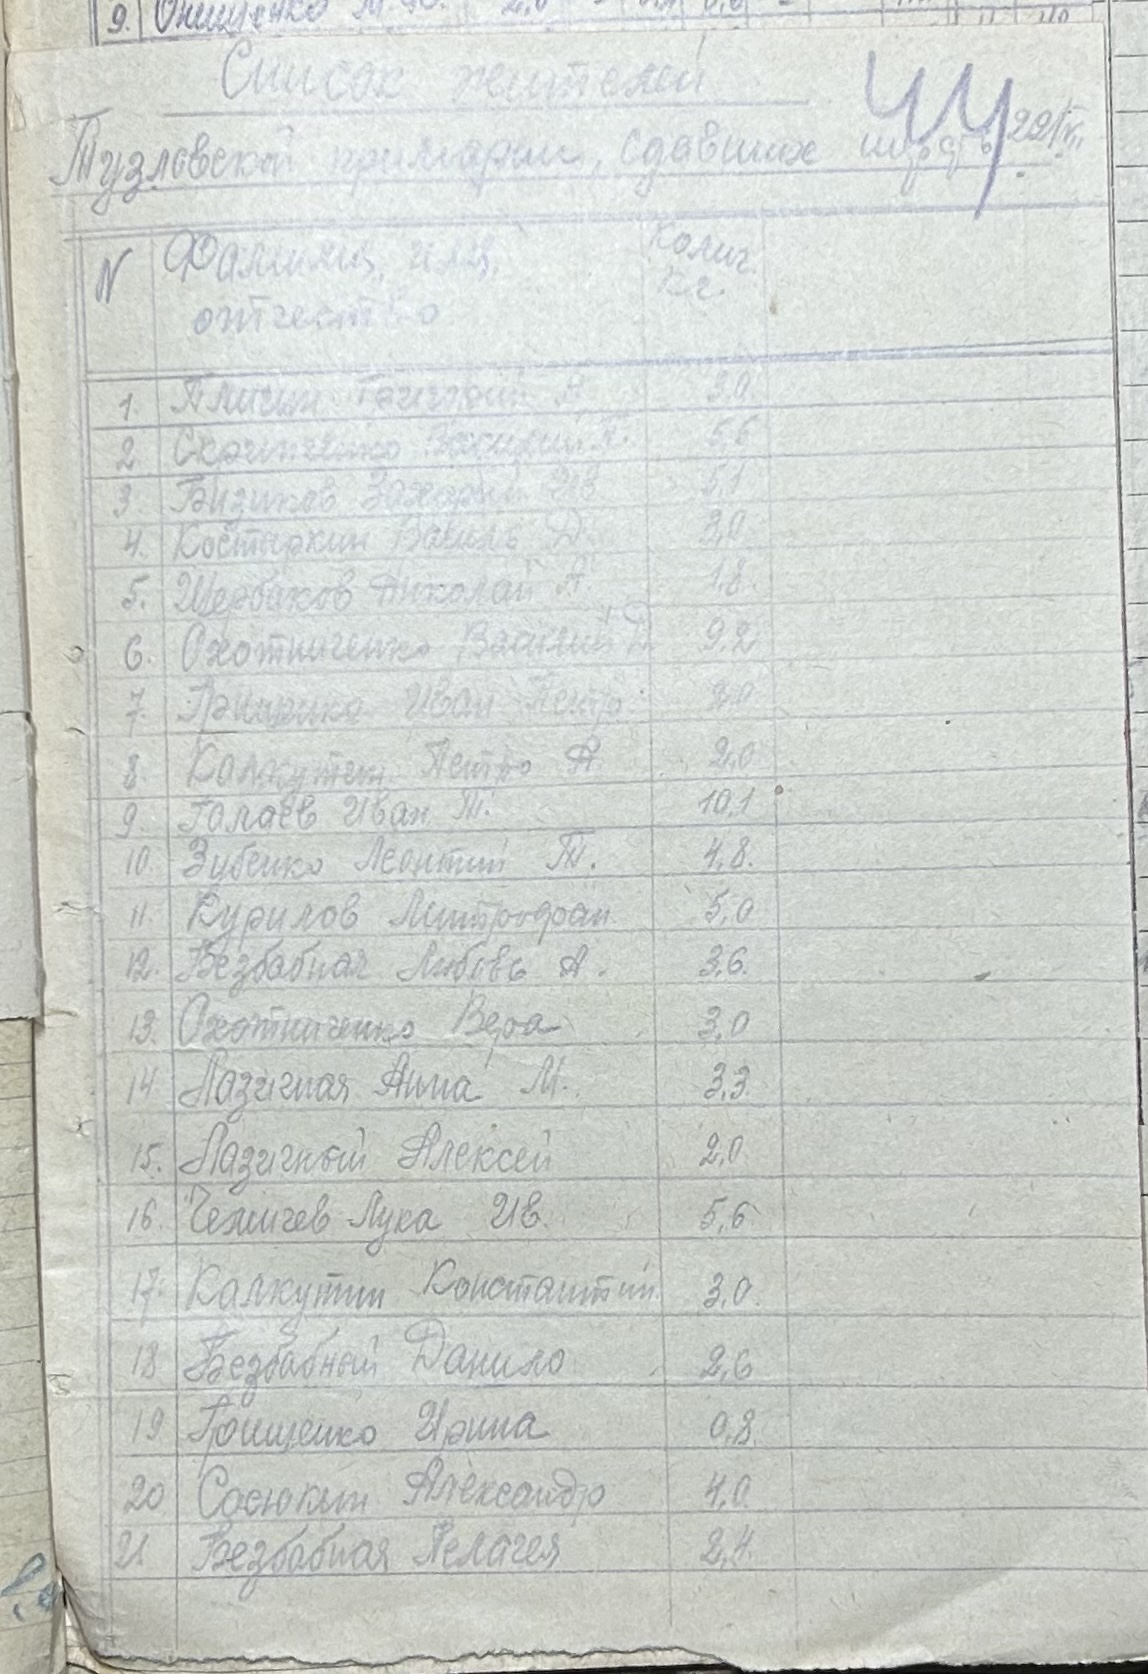 9. Онищенко М.Ф. 2,0
Список жителей
44
Тузловской примарии, сдавших шерсть 22/V
N Фамилия, имя, Колич.
отчество кг.
1. Григорий В. 3,0
2. Василий П. 5,5
3. Бизинов Захарий Ив 5,1
4. Костыркин Василь Д. 3,0
5. Щербаков Николай А. 1,8.
6. Охотниченко Василий Д. 9,2
7. Иван Петр. 2,0
8. Калкутин Петро А 2,0
9. Голаев Иван Т. 10,1
10. Зубенко Леонтий Т. 4,8.
11. Курилов Митрофан 5,0
12. Безбабная Любовь А. 3,6.
13. Охотниченко Вера 3,0
14 Лазичная Анна М. 3,3.
15. Лазичный Алексей 2,0.
16. Чемичев Лука Ив. 5,6
17. Калкутин Константин 3,0.
18 Безбабный Данило 2,6
19 Грищенко Ирина 0,8.
20 Сосюкин Александр 4,0.
21 Безбабная Пелагея 2,4.